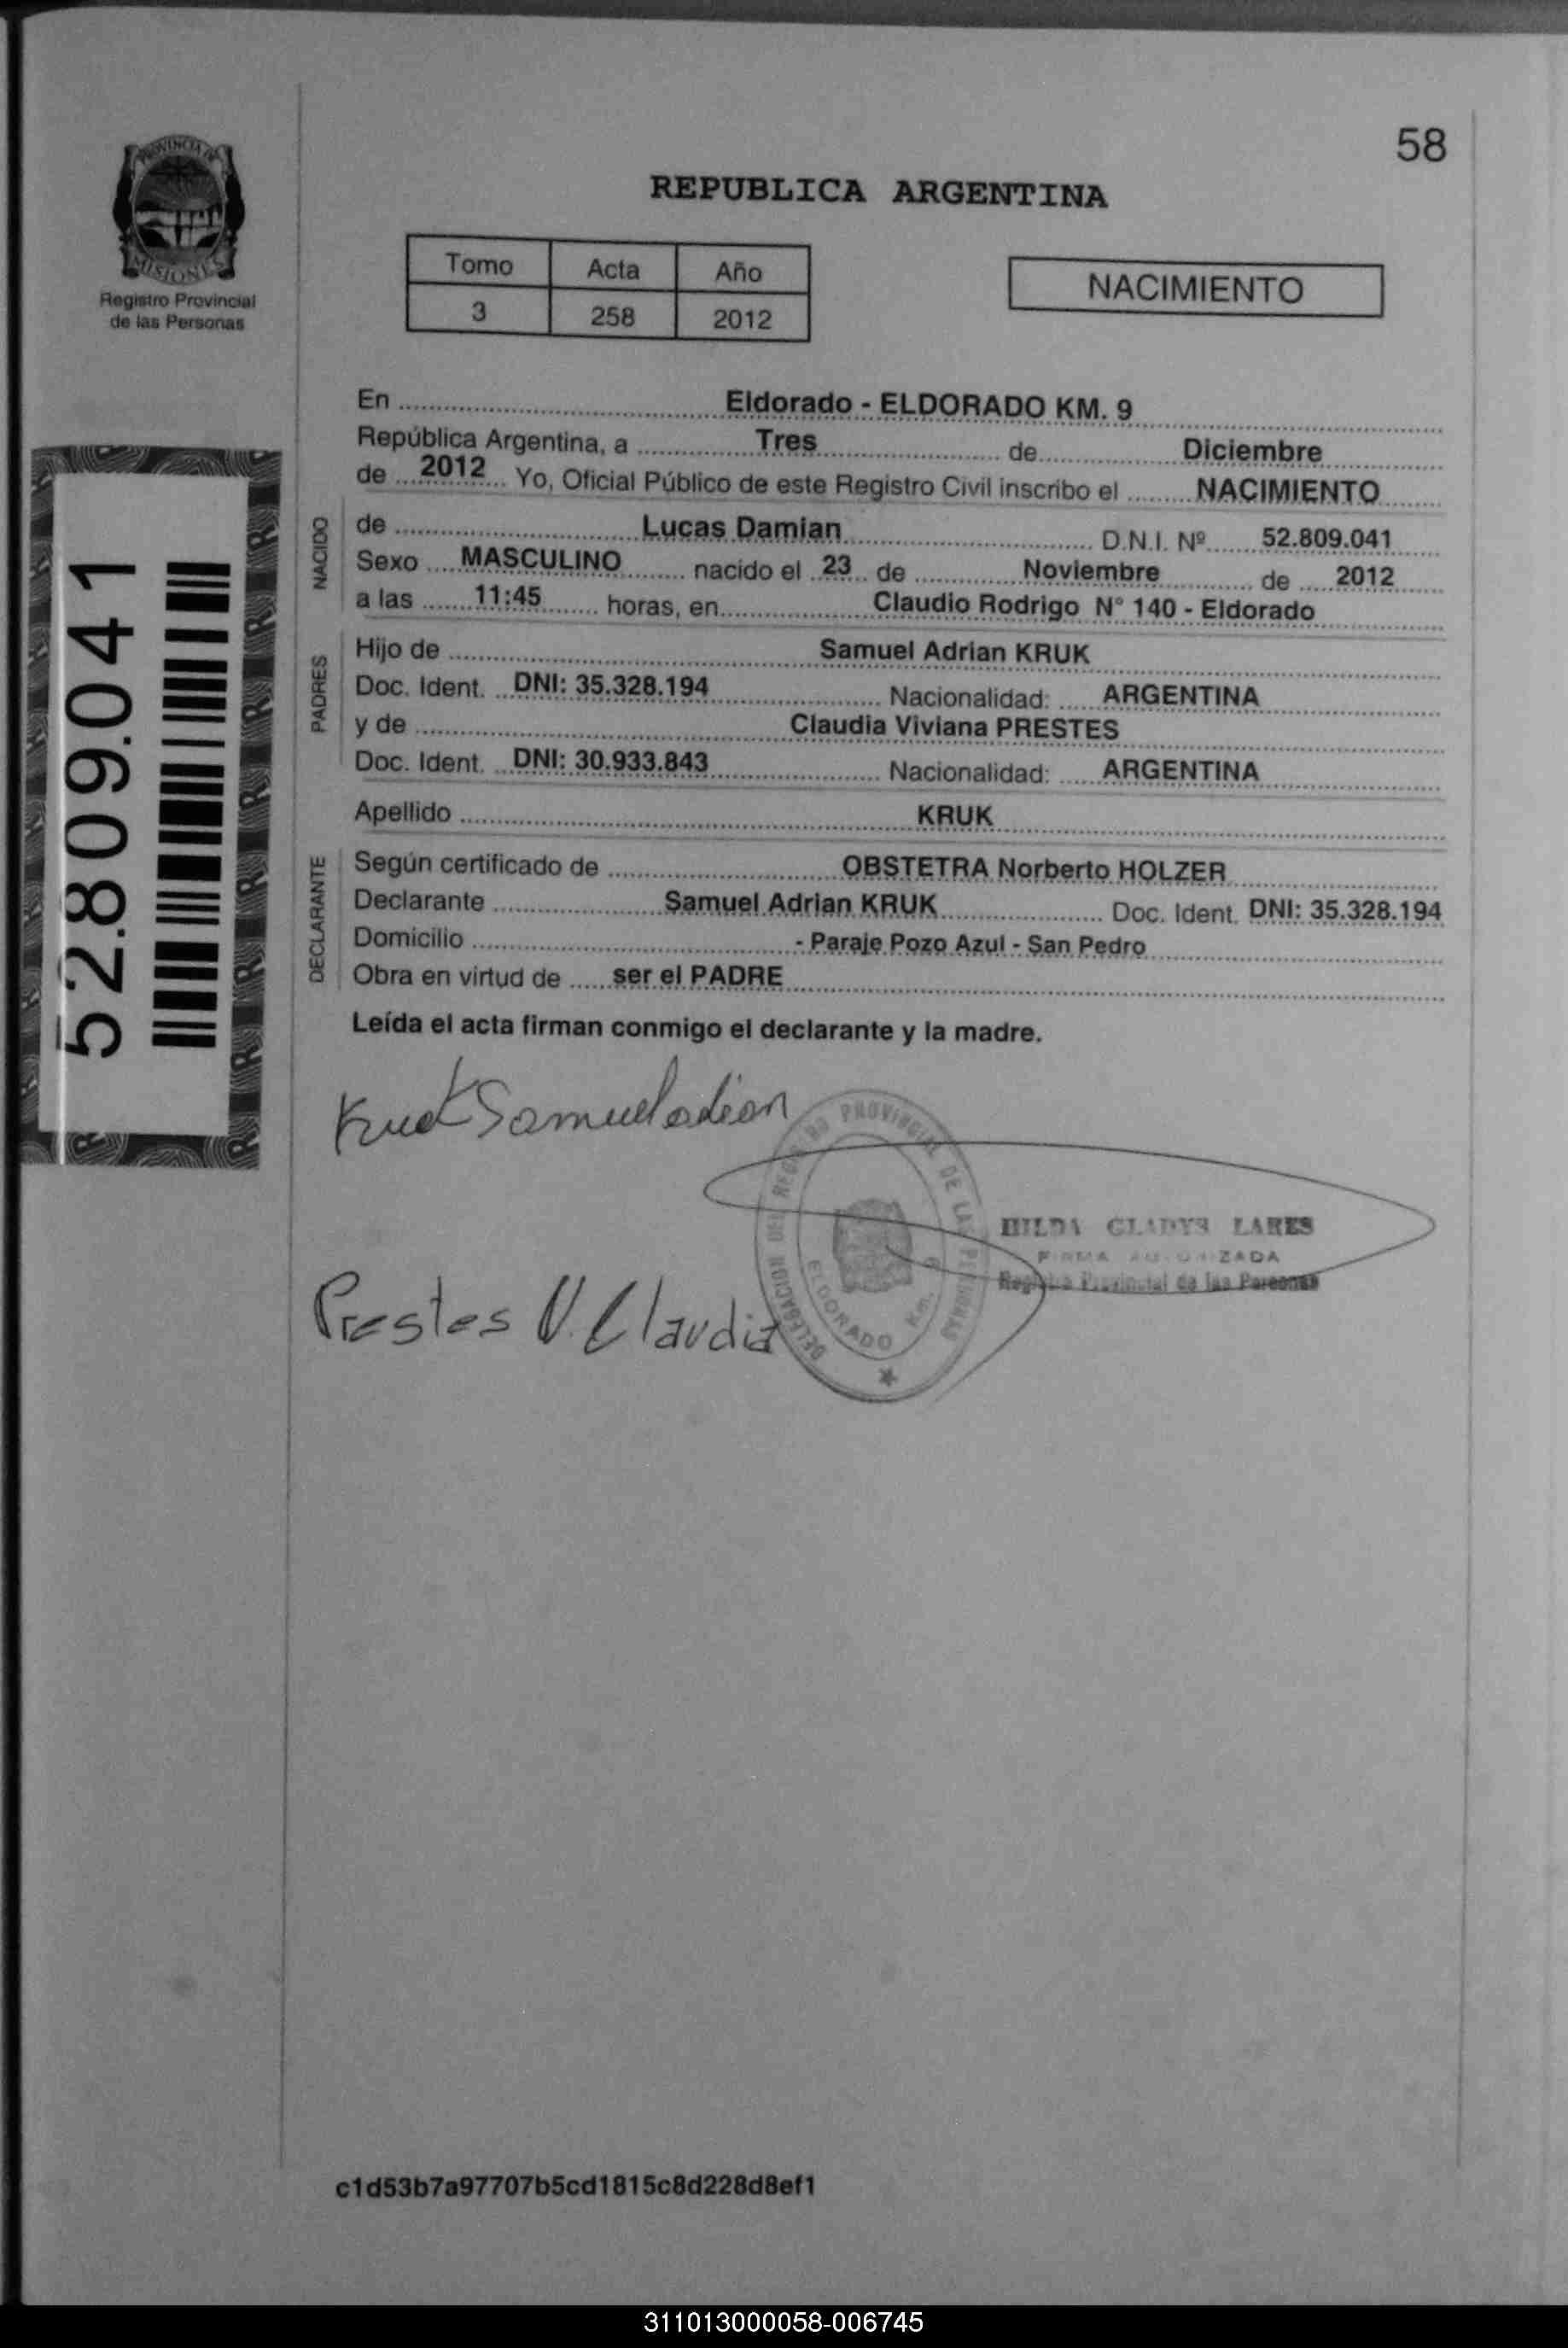 58
PROVINCIA DE
MISIONES
Registro Provincial
de las Personas
REPUBLICA ARGENTINA
Tomo Acta Año
3 258 2012
NACIMIENTO
52.809.041
En Eldorado - ELDORADO KM. 9
República Argentina, a Tres de Diciembre
de 2012 Yo, Oficial Público de este Registro Civil inscribo el NACIMIENTO
NACIDO
de Lucas Damian D.N.I. Nº 52.809.041
Sexo MASCULINO nacido el 23 de Noviembre de 2012
a las 11:45 horas, en Claudio Rodrigo N° 140 - Eldorado
PADRES
Hijo de Samuel Adrian KRUK
Doc. Ident. DNI: 35.328.194 Nacionalidad: ARGENTINA
y de Claudia Viviana PRESTES
Doc. Ident. DNI: 30.933.843 Nacionalidad: ARGENTINA
Apellido KRUK
DECLARANTE
Según certificado de OBSTETRA Norberto HOLZER
Declarante Samuel Adrian KRUK Doc. Ident. DNI: 35.328.194
Domicilio - Paraje Pozo Azul - San Pedro
Obra en virtud de ser el PADRE
Leída el acta firman conmigo el declarante y la madre.
Kruk Samuel adrian
DELEGACION DEL REGISTRO PROVINCIAL DE LAS PERSONAS
ELDORADO Km. 9
HILDA GLADYS LARES
FIRMA AUTORIZADA
Registro Provincial de las Personas
Prestes V. Claudia
c1d53b7a97707b5cd1815c8d228d8ef1
311013000058-006745